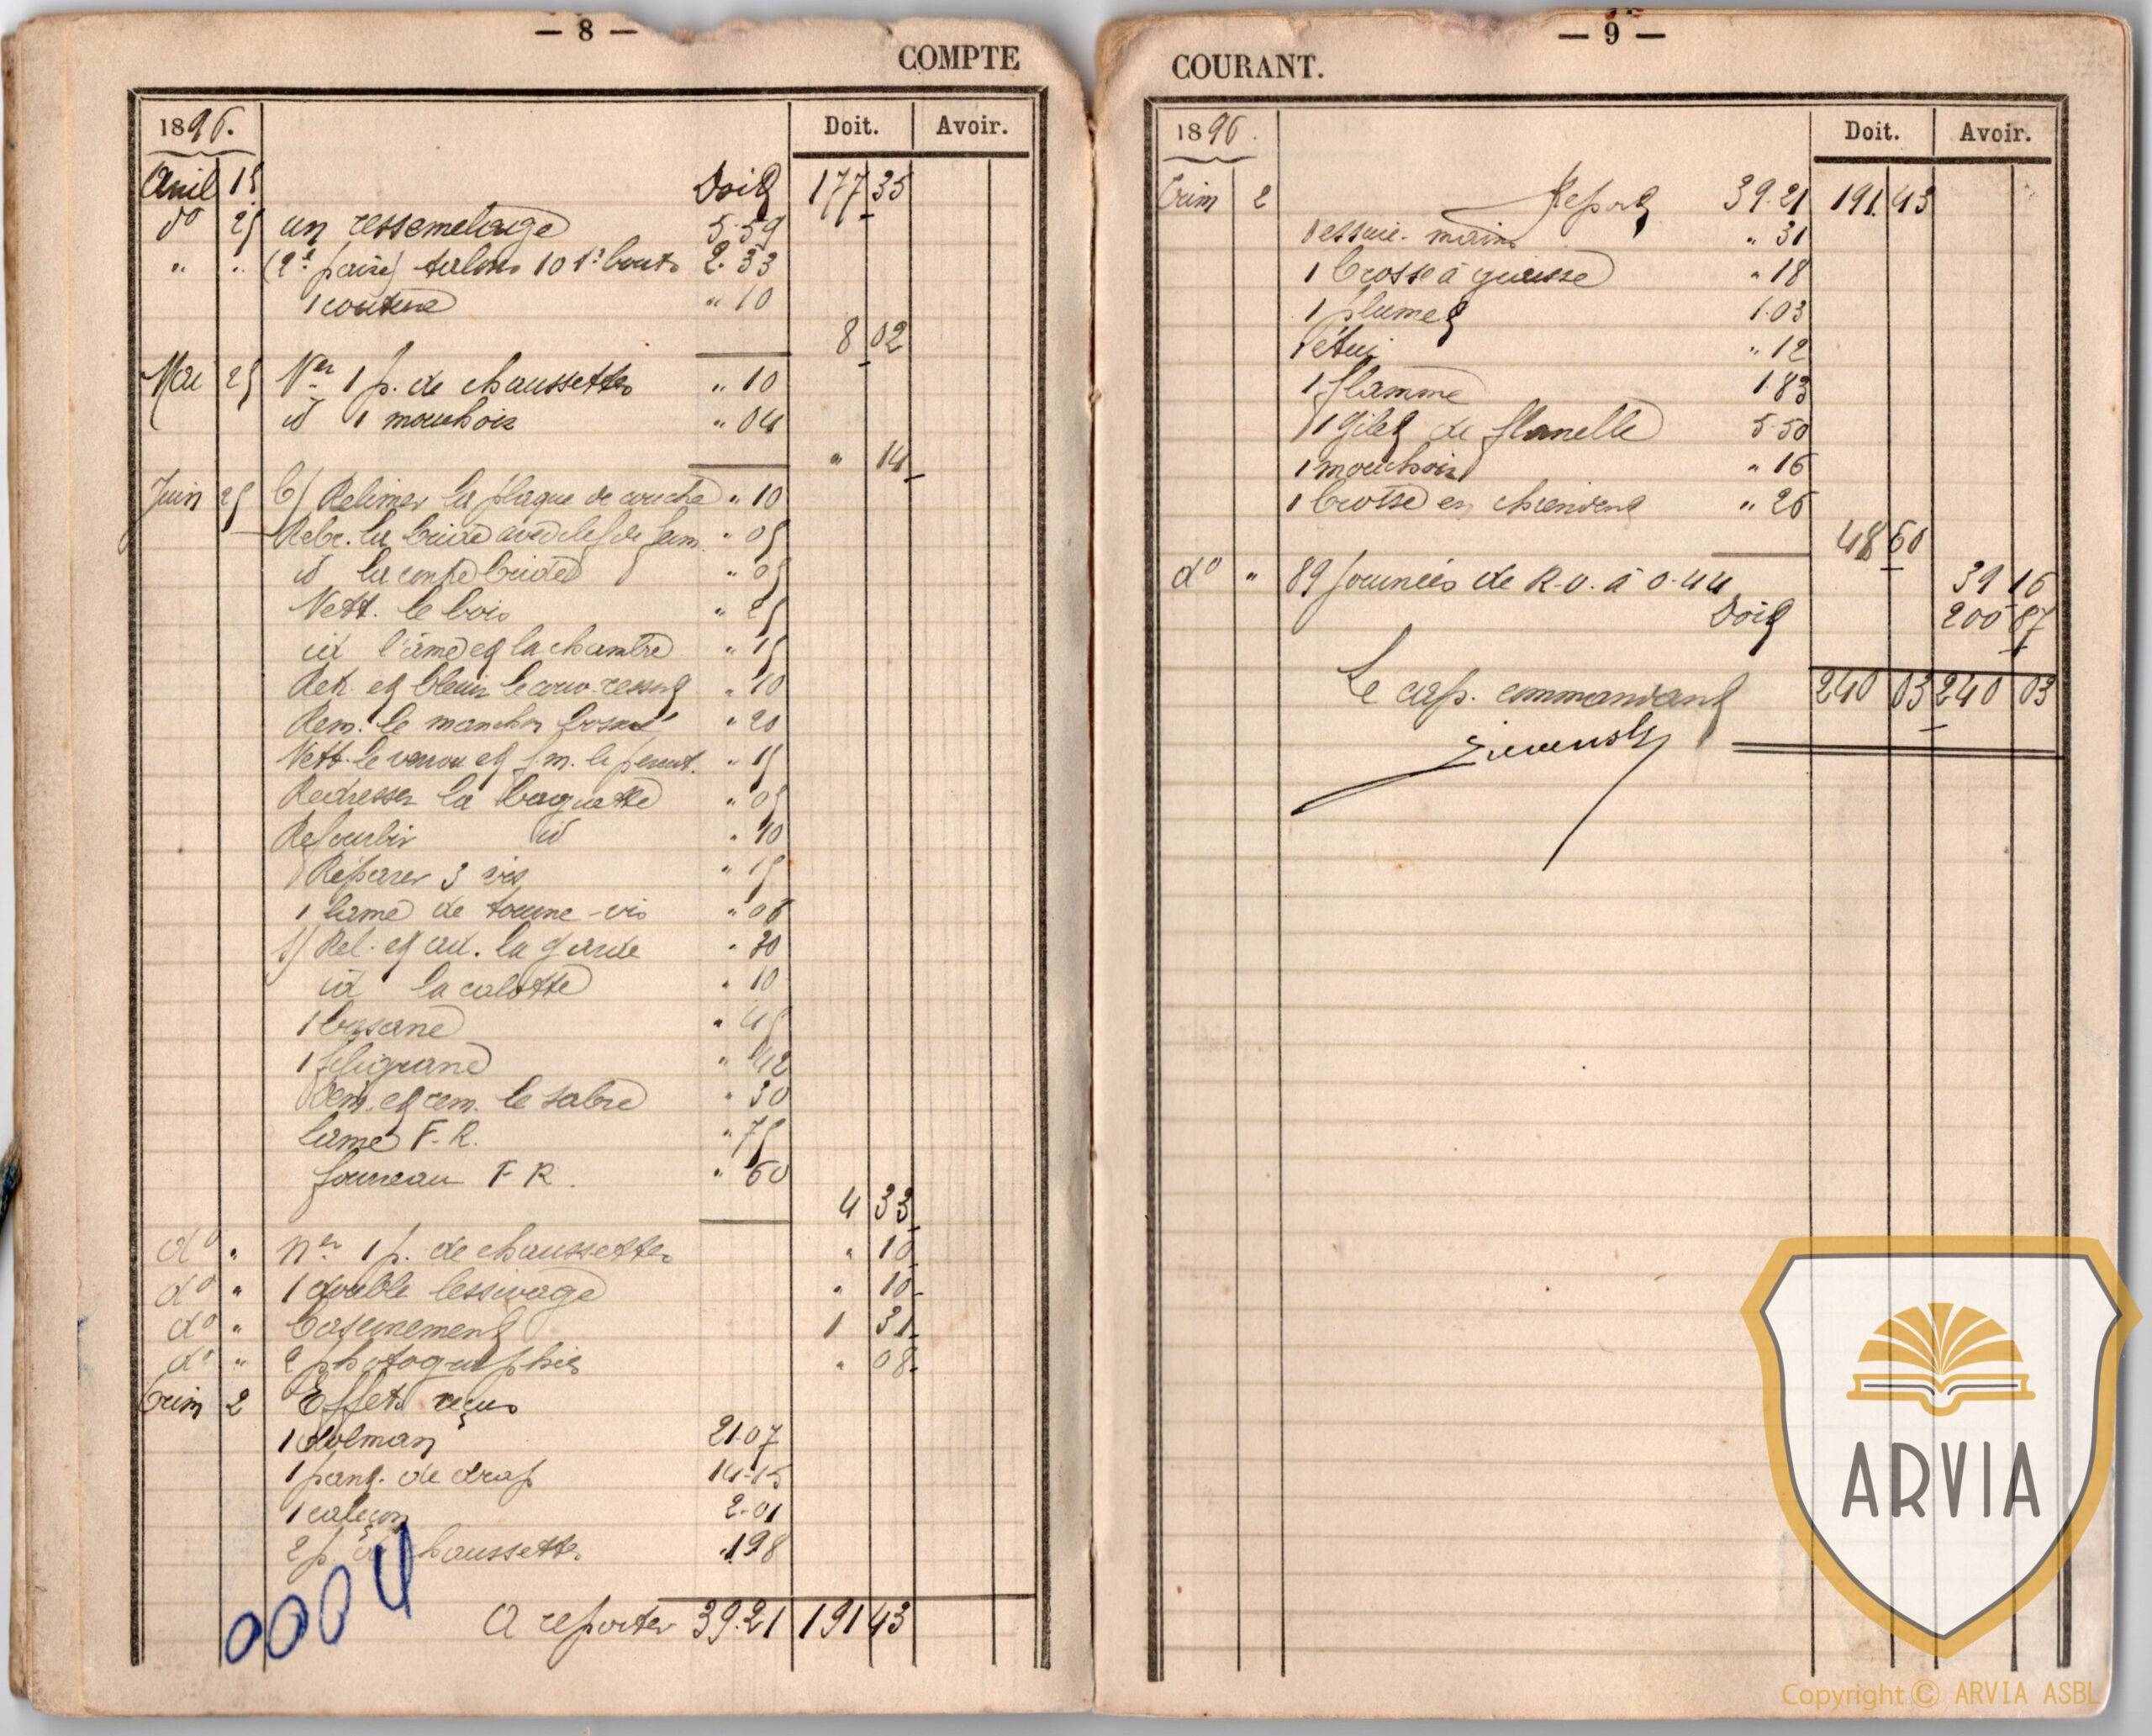 — 8 —
COMPTE
1896.
Doit. Avoir.
Avril 15 Doit 177 35
do 25 un ressemelage 5.59
" " (2e paire) talons 10 1s bouts 2.33
1 couture " 10
8 02
Mai 25 Nen 1 p. de chaussettes " 10
id 1 mouchoir " 04
" 14
Juin 25 C/ Relimer la plaque de couche " 10
Rebr. la bride avec clef de " 05
id la contre bride " 05
Nett. le bois " 25
id l'âme et la chambre " 15
Ret. et bleuir le couv. ressort " 10
Rem. le manchon bosselé " 20
Nett. le verrou et f.m. le percut. " 15
Redresser la baguette " 05
Refourbir id " 10
Réparer 3 vis " 15
1 lame de tourne-vis " 06
S/ Rel. et ad. la garde " 30
id la calotte " 10
1 basane " 45
1 filigrane " 42
Dém. et rem. le sabre " 30
lame F-R. " 75
fourreau F-R. " 60
4 33
do " Nen 1 p. de chaussettes " 10
do " 1 double lessivage " 10
do " Casernement 1 31
do " 2 photographies " 08
Trim 2 Effets reçus
1 dolman 21.07
1 pant. de drap 14.15
1 caleçon 2.01
2 p. de chaussettes 1.98
0004
A reporter 39.21 191 43
— 9 —
COURANT.
1896.
Doit. Avoir.
Trim 2 Report 39.21 191.43
1 essuie-mains " 31
1 brosse à graisse " 18
1 plumet 1.03
1 étui " 12
1 flamme 1.83
1 gilet de flanelle 5.50
1 mouchoir " 16
1 brosse en chiendent " 26
48 60
do " 89 journées de R.O. à 0.44 39 16
Doit 200 87
Le cap. commandant 240 03 240 03
ARVIA
Copyright © ARVIA ASBL